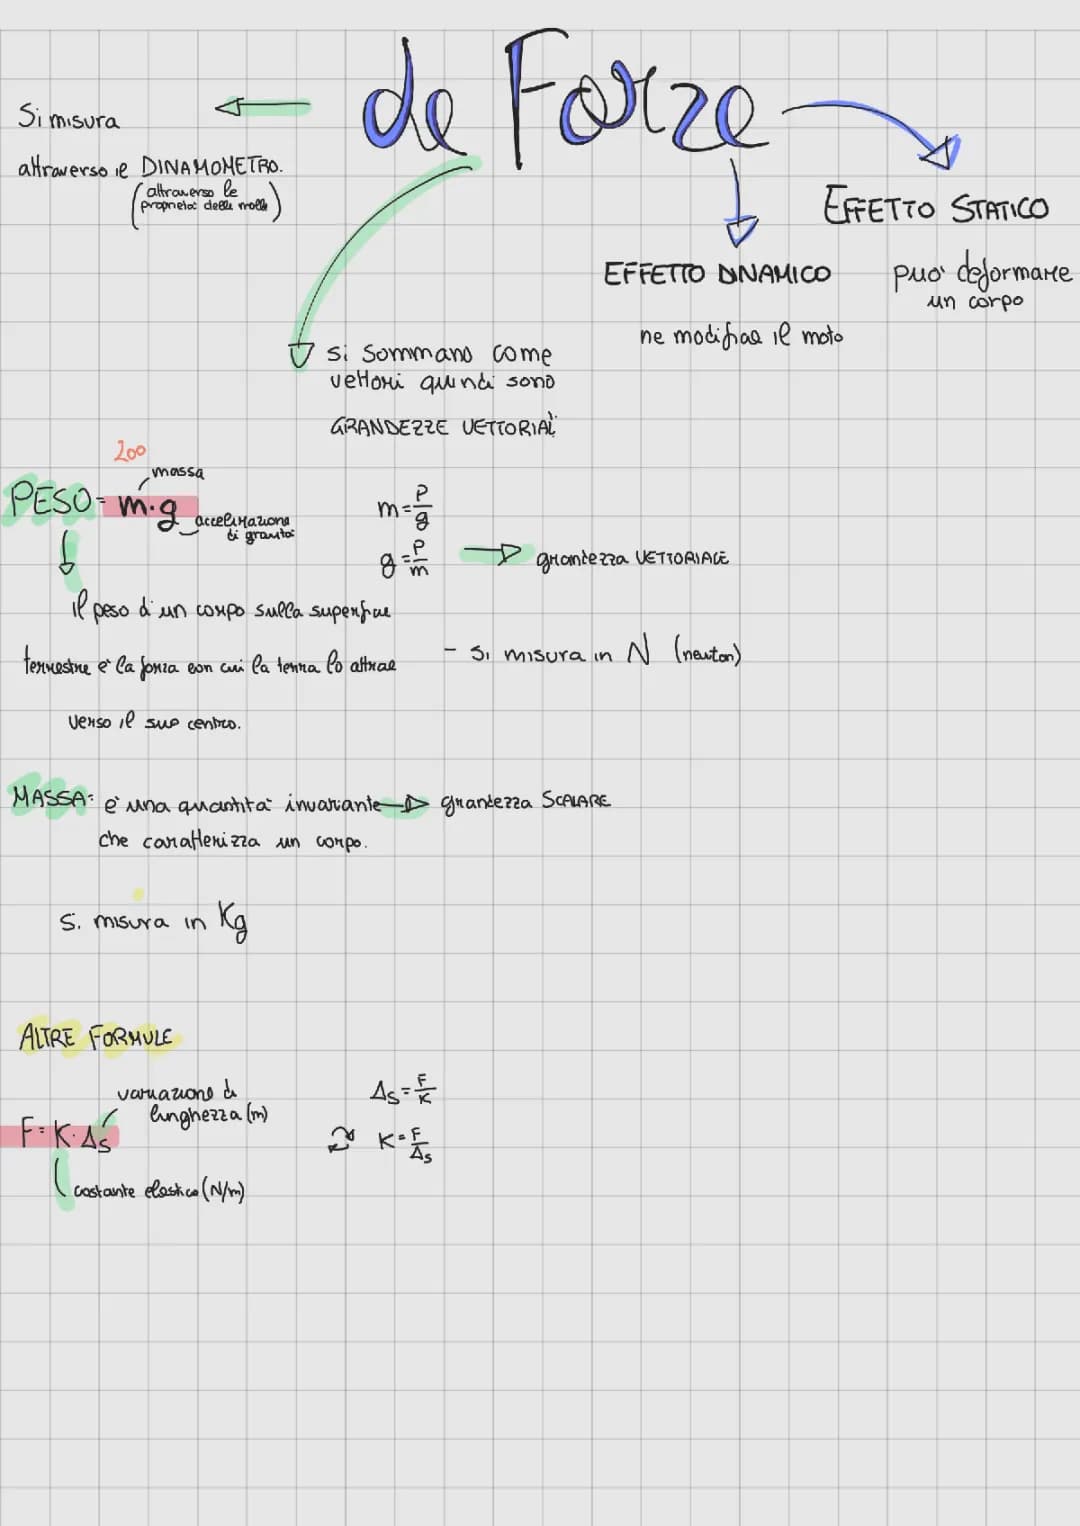 le Forze
Si misura
attraverso il DINAMOMETRO.
(attraverso le
proprietà delle molle)
EFFETTO STATICO
può deformare
un corpo
EFFETTO DINAMICO
ne modifica il moto
si sommano come
vettori quindi sono
GRANDEZZE VETTORIALI
200
massa
PESO = m·g
accelerazione
di gravità
m = P/g
g = P/m
grandezza VETTORIALE
Il peso di un corpo sulla superficie
terrestre è la forza con cui la terra lo attrae
verso il suo centro.
- si misura in N (newton)
MASSA: è una quantità invariante grandezza SCALARE
che caratterizza un corpo.
Si misura in Kg
ALTRE FORMULE
variazione di
lunghezza (m)
F = K·Δs
costante elastica (N/m)
Δs = F/K
K = F/Δs